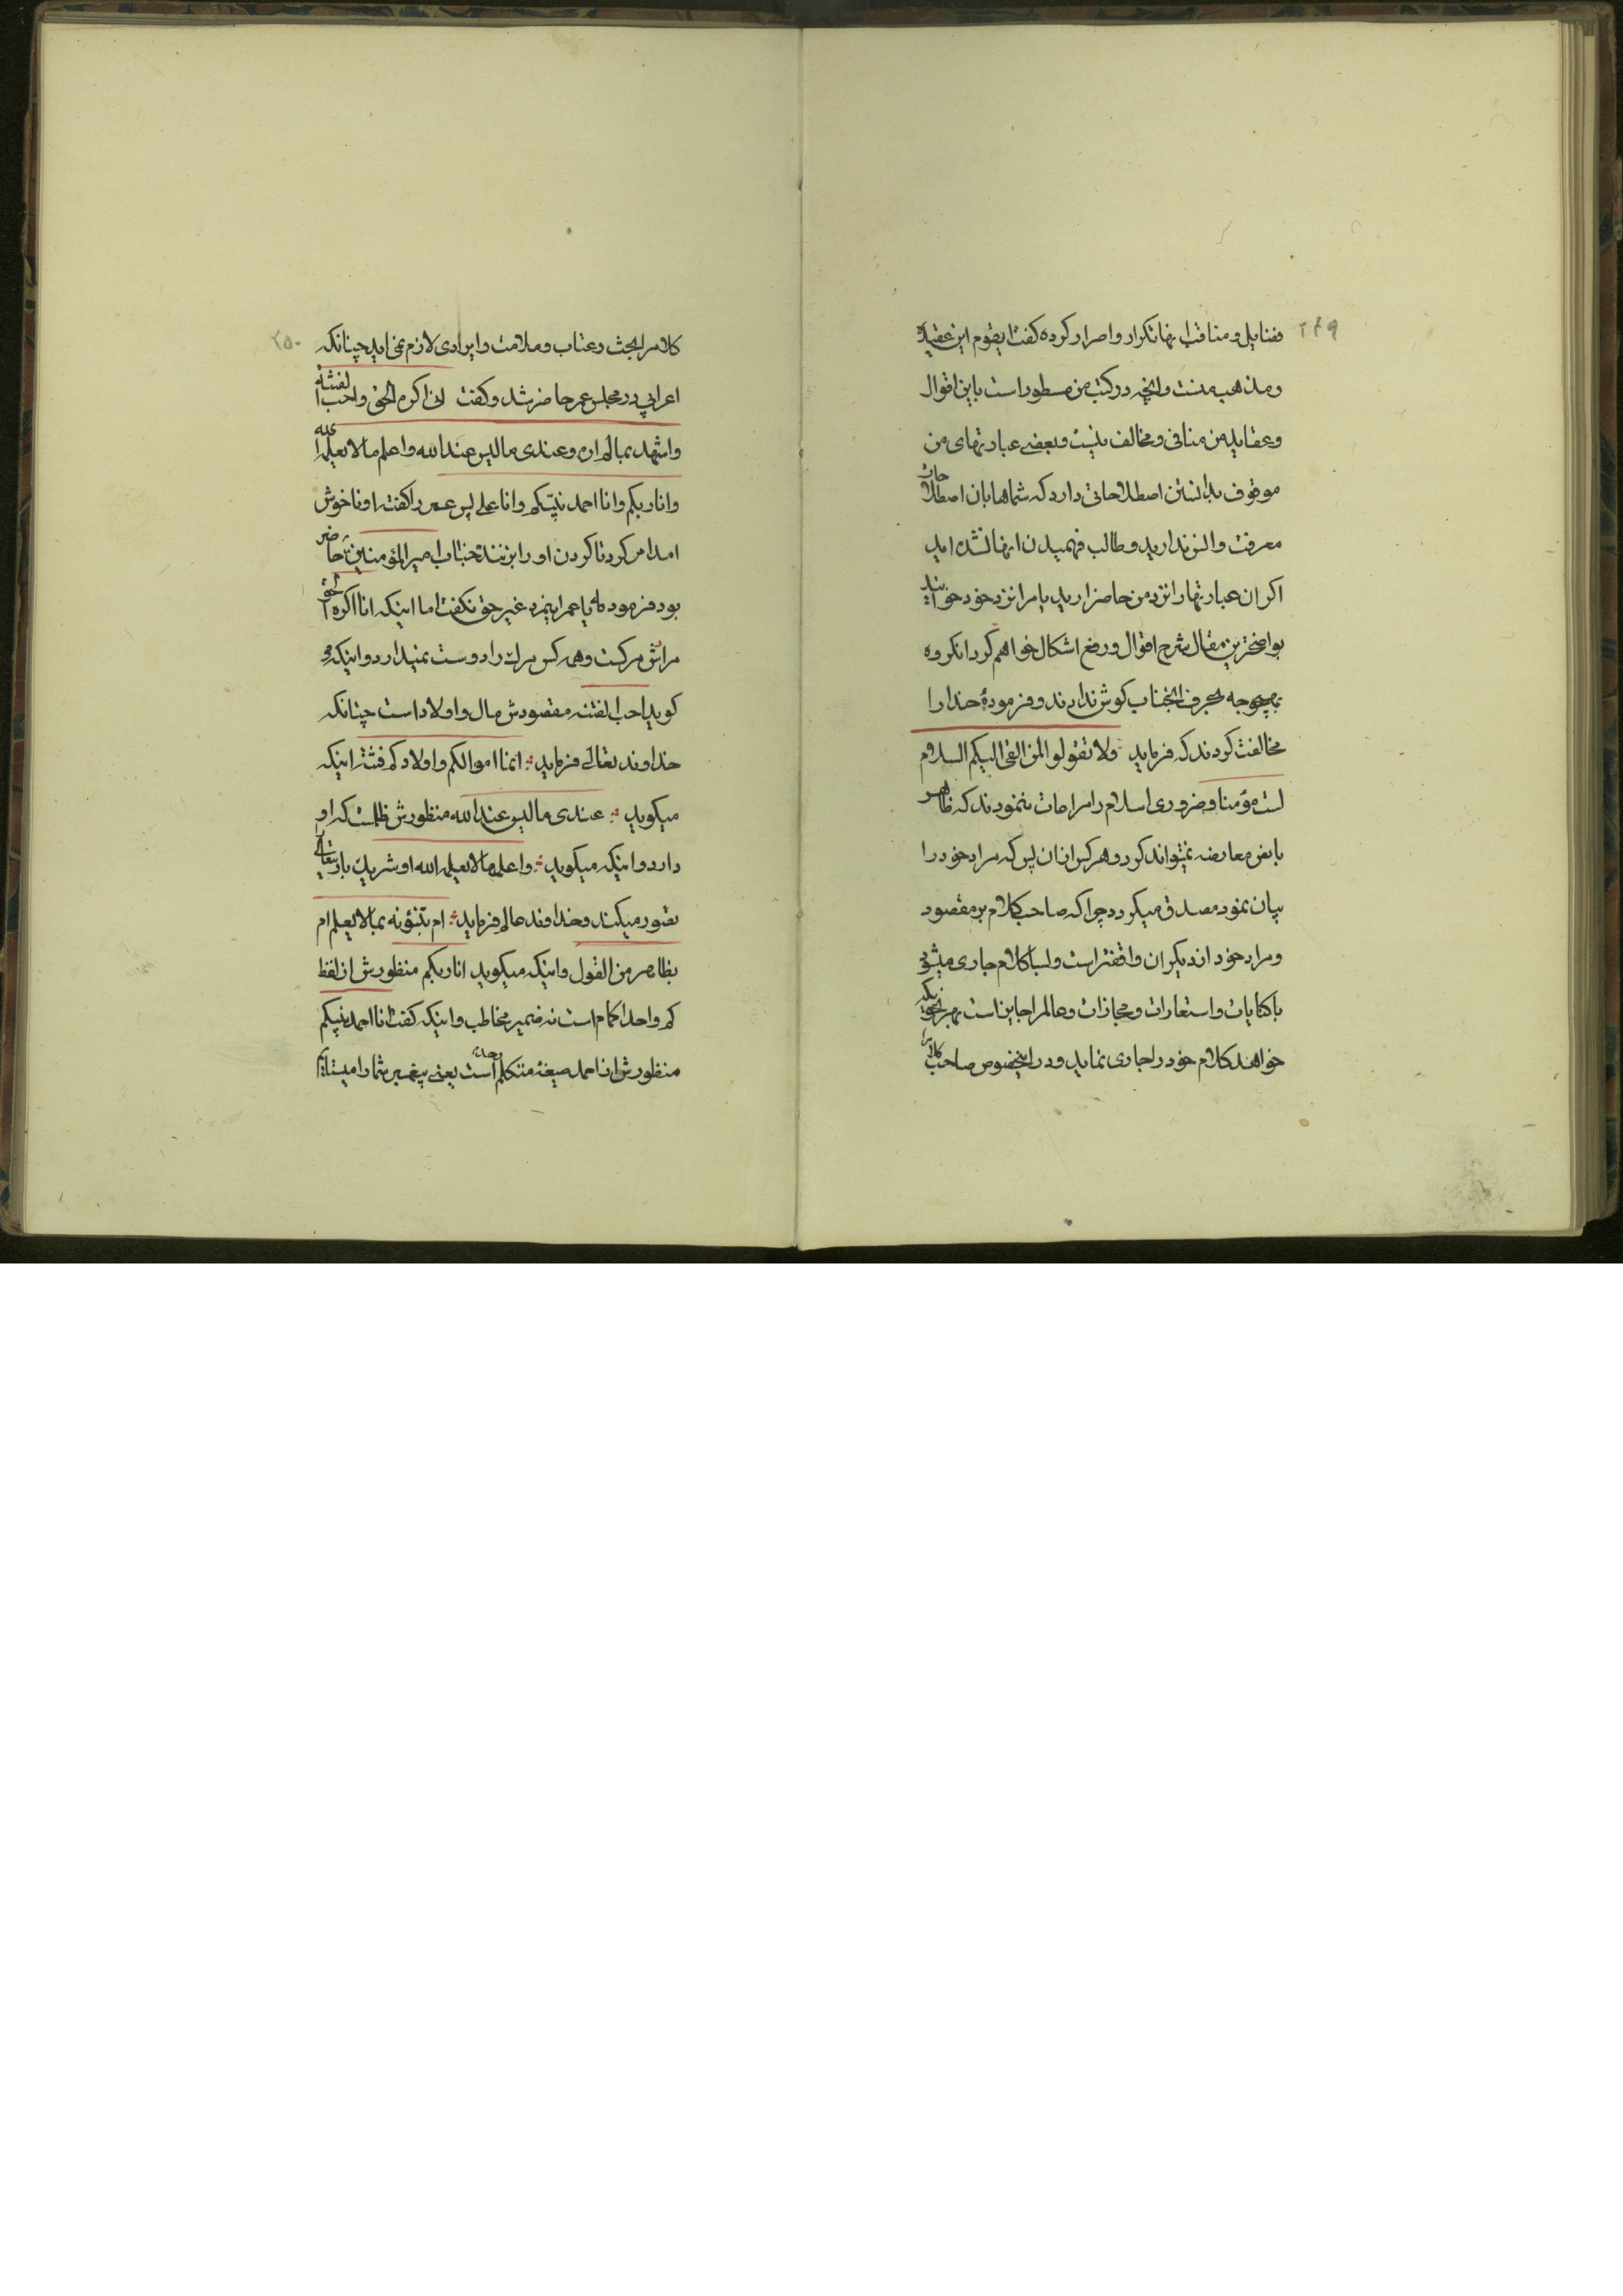 ۲۴۹
فضایل و مناقب انها تکرار و اصرار کرده کفت ایقوم این عقیده
و مذهب منست و انچه در کتب من مسطور است باین اقوال
و عقاید من منافی و مخالف نیست و بعضی عبارتهای من
موقوف بدانستن اصطلاحاتی دارد که شماها بان اصطلاحات
معرفت و انس ندارید و طالب فهمیدن انها نشده اید
اکر ان عبارتها را نزد من حاضر ارید یا مرا نزد خود خوانید
بواضحترین مقال شرح اقوال و رفع اشکال خواهم کرد انکروه
بهیچوجه بحرف انجناب کوش ندادند و فرمودهٔ خدا را
مخالفت کردند که فرماید ولا تقولوا لمن القی الیکم السلام
لست مؤمنا و ضروری اسلام را مراعات ننمودند که ظاهر
با نص معارضه نمیتواند کرد و هر کس از ان پس که مراد خود را
بیان نمود مصدق میکردد چرا که صاحب کلام بر مقصود
و مراد خود از دیکران واقفتر است و بسا کلام جاری میشود
با کنایات و استعارات و مجازات و عالم را جایز است بهر نحویکه
خواهد کلام خود را جاری نماید و در اینخصوص صاحب کلام
۲۵۰
کلام را بحث و عتاب و ملامت و ایرادی لازم نمی اید چنانکه
اعرابی در مجلس عمر حاضر شد و کفت انی اکره الحق و احب الفتنه
و اشهد بما لم اره و عندی ما لیس عند الله و اعلم ما لا یعلم الله
و انا ربکم و انا احمد نبیّکم و انا علی پس عمر را کفته او ناخوش
امد امر کرد تا کردن او را بزنند جناب امیر المؤمنین ع حاضر
بود فرمود که یا عمر اینمرد غیر حق نکفت اما اینکه انا اکره الحق
مرادش مرکست و هر کس مرک را دوست نمیدارد و اینکه می
کوید احب الفتنه مقصودش مال و اولاد است چنانکه
خداوند تعالی فرماید انما اموالکم و اولادکم فتنة اینکه
میکوید عندی ما لیس عند الله منظورش ظلمست که او
دارد و اینکه میکوید و اعلم ما لا یعلم الله او شریک باریتعالی
تصور میکند و خداوند عالم فرماید ام تنبؤنه بما لا یعلم ام
بظاهر من القول و اینکه میکوید انا ربکم منظورش از لفظ
کم واحد اکمام است نه ضمیر مخاطب و اینکه کفت انا احمد نبیکم
منظورش از احمد صیغهٔ متکلم وحده است یعنی پیغمبر شما را میستایم